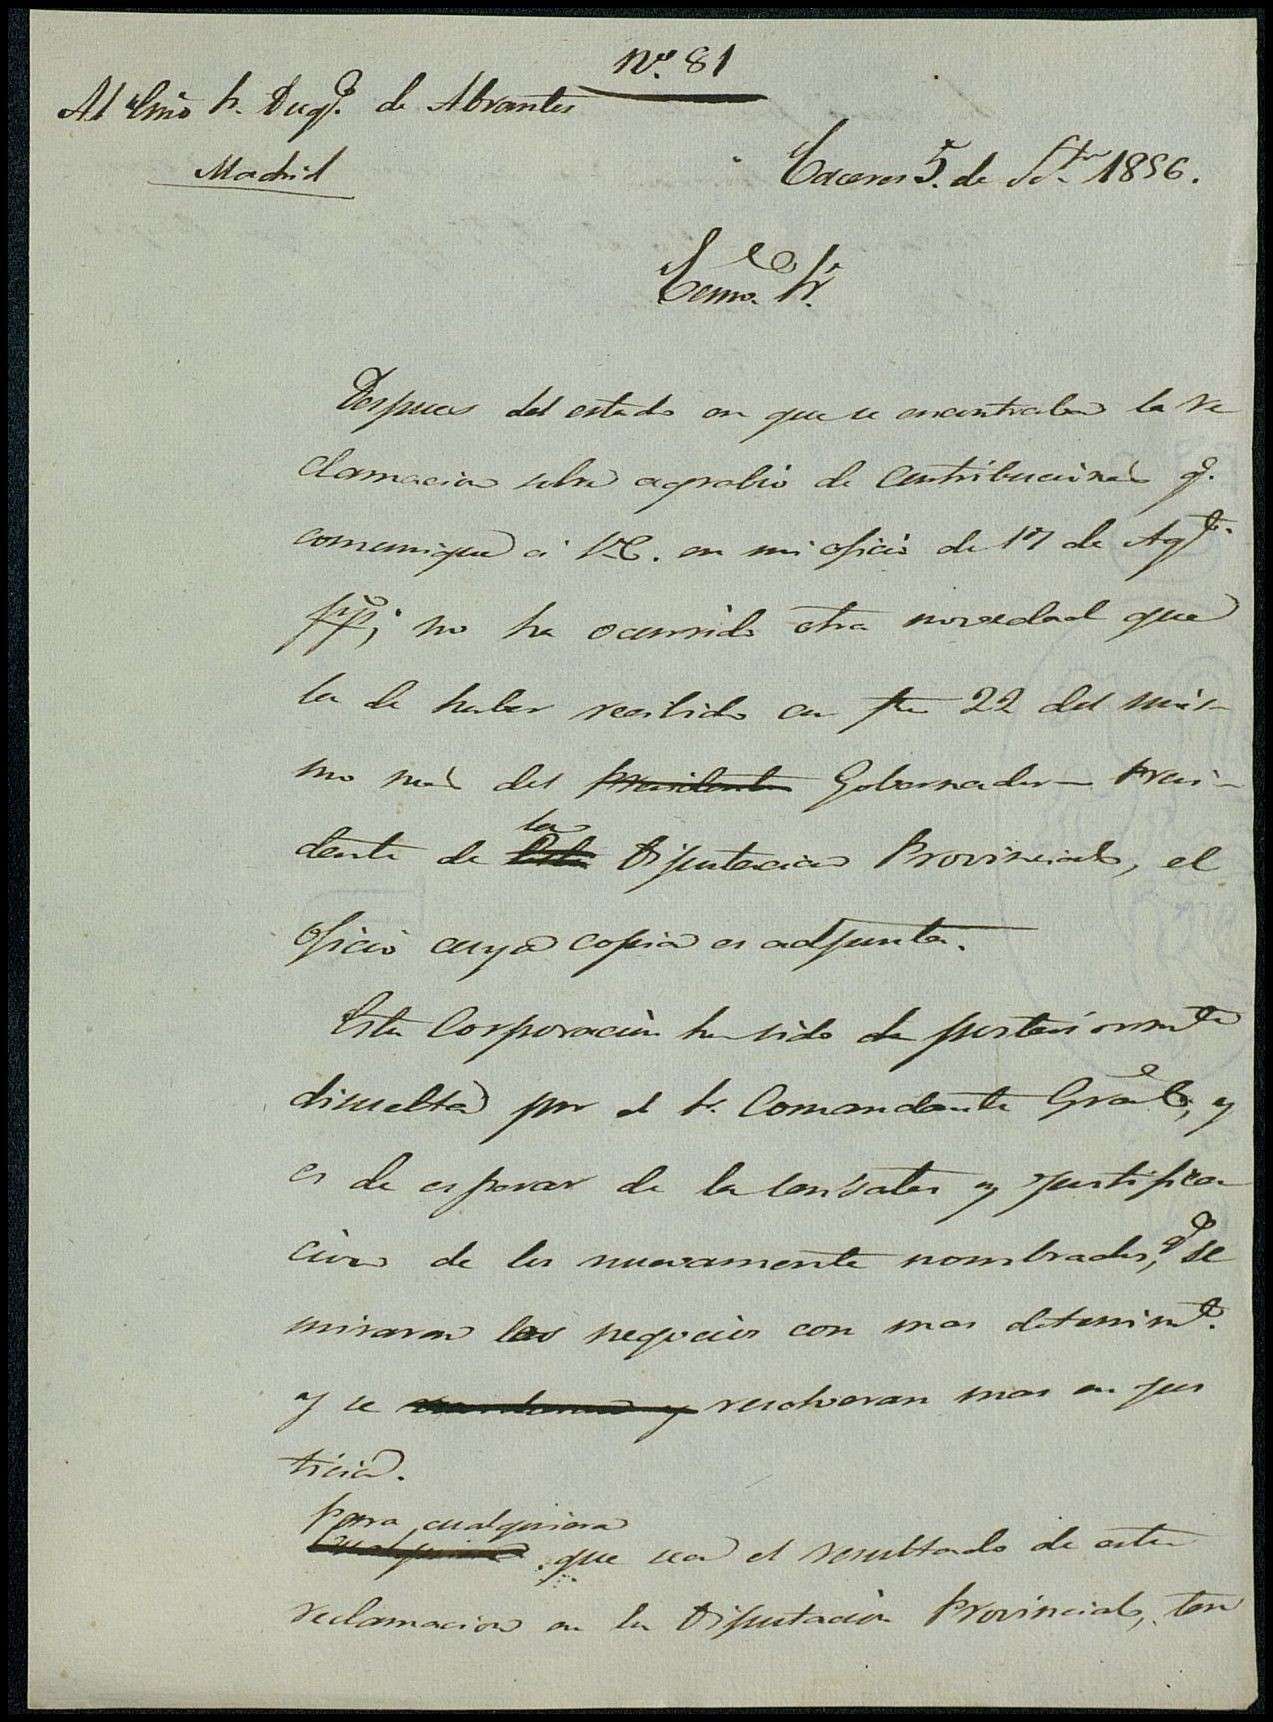 Nº. 81
Al Emo Sr. Duqe. de Abrantes
Madrid
Caceres 5. de Stre 1856.
Eemo. Sr.
Despues del estado en que se encontraba la re
clamacion sobre agrabio de contribuciones q.
comuniqué á VE. en mi oficio de 17 de Agto.
ppº; no ha ocurrido otra novedad que
la de haber recibido en fha 22 del mis-
mo mes del Presidente Gobernador Presi-
dente de la esta Diputacion Provincial, el
oficio cuya copia es adjunta.
Esta Corporacion ha sido posteriormte
disuelta por el Sr. Comandante Gral, y
es de esperar de la sensatez y justifica
cion de los nuevamente nombrados, qe se
miraran los negocios con mas detenimto.
y se resolveran mas en jus
ticia.
Para cualquiera
Cualquiera que sea el resultado de esta
reclamacion en la Diputacion Provincial, ten